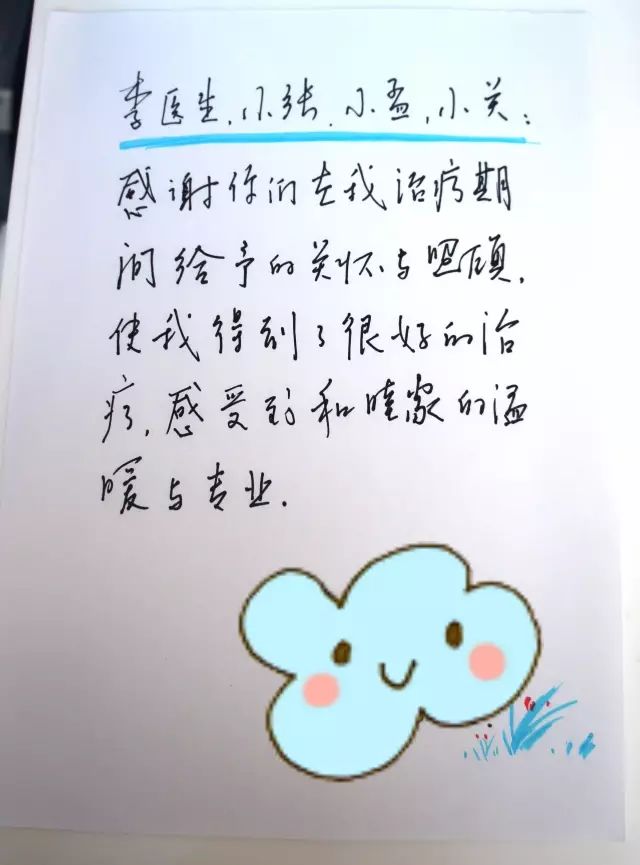 李医生,小张,小孟,小关:
感谢你们在我治疗期
间给予的关怀与照顾,
使我得到了很好的治
疗,感受到和睦家的温
暖与专业.